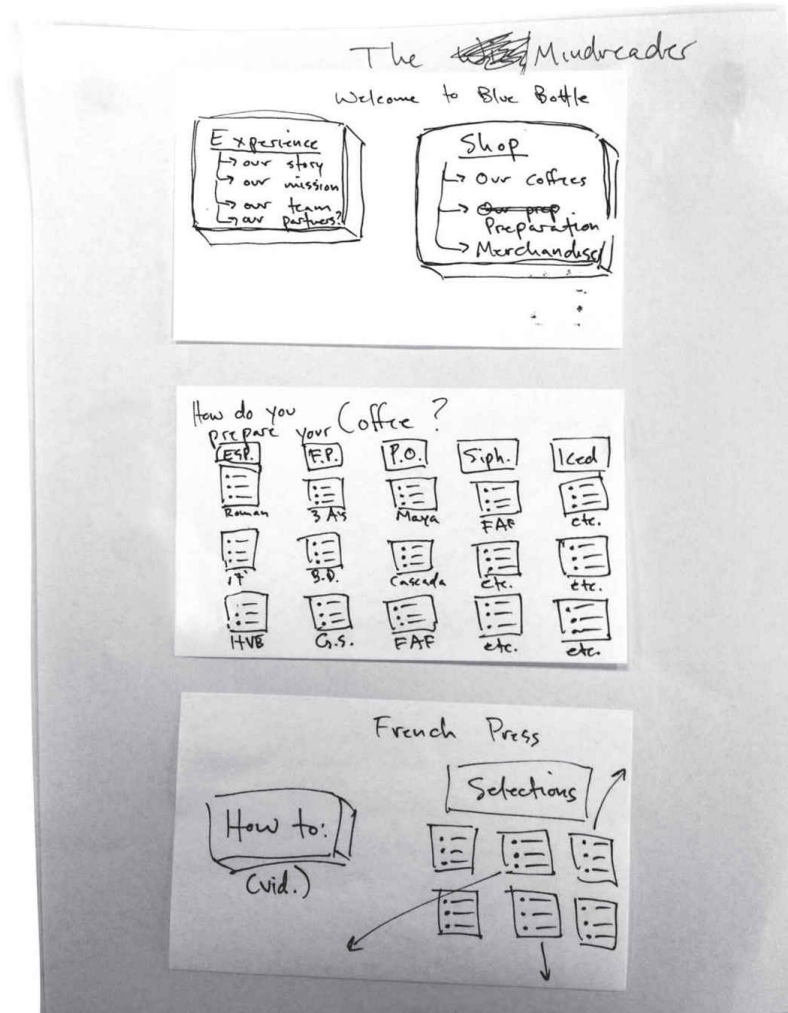 The Mindreader
Welcome to Blue Bottle
Experience
our story
our mission
our team
our partners?
Shop
Our coffees
Our prep
Preparation
Merchandise
How do you
prepare your Coffee?
ESP. F.P. P.O. Siph. Iced
Roman 3 A's Maya FAF etc.
17' B.D. Cascada etc. etc.
HVB G.S. FAF etc. etc.
French Press
Selections
How to:
(vid.)